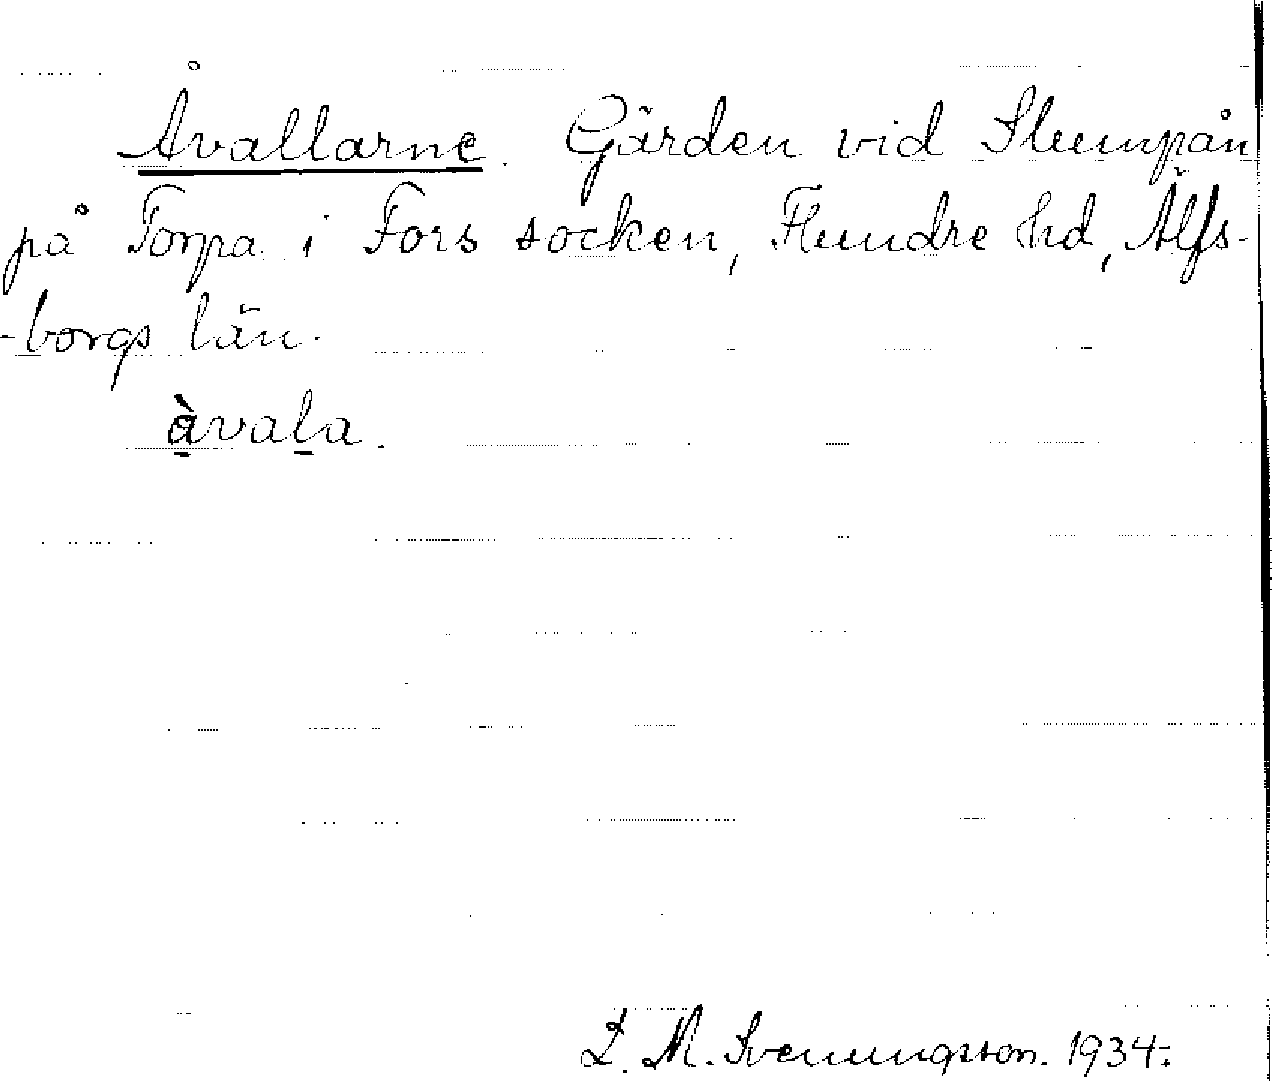 Åvallarne. Gärden vid Slumpån
på Torpa i Fors socken, Flundre hd, Älfs-
-borgs län.
àvala.
L. M. Svenungsson. 1934.